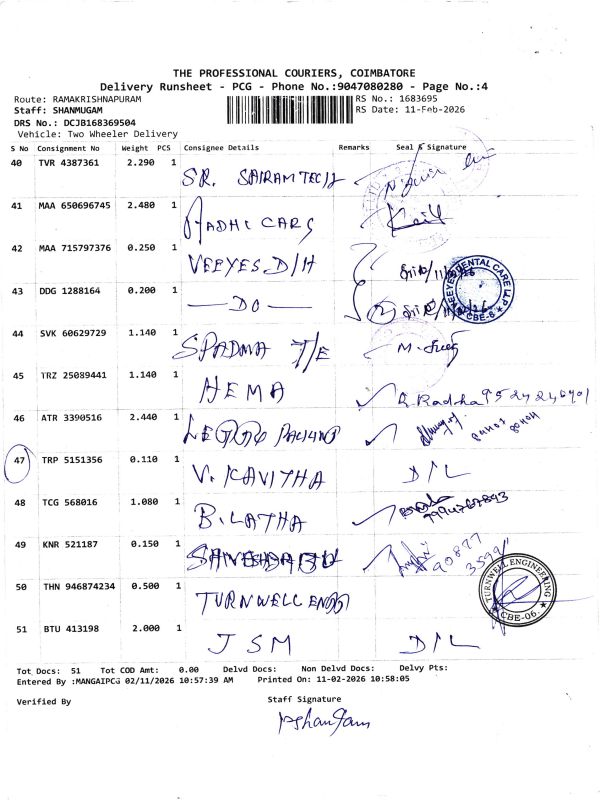 THE PROFESSIONAL COURIERS, COIMBATORE
Delivery Runsheet - PCG - Phone No.:9047080280 - Page No.:4
Route: RAMAKRISHNAPURAM RS No.: 1683695
Staff: SHANMUGAM RS Date: 11-Feb-2026
DRS No.: DCJB168369504
Vehicle: Two Wheeler Delivery
S No Consignment No Weight PCS Consignee Details Remarks Seal & Signature
40 TVR 4387361 2.290 1 SR. SAIRAM TECH
41 MAA 650696745 2.480 1 AADHI CARS
42 MAA 715797376 0.250 1 VEEYES D/H
43 DDG 1288164 0.200 1 — DO —
VEEYES DENTAL CARE LLP CBE-6
44 SVK 60629729 1.140 1 SPADMA T/E M.
45 TRZ 25089441 1.140 1 HEMA R. Radha
46 ATR 3390516 2.440 1
47 TRP 5151356 0.110 1 V. KAVITHA D/L
48 TCG 568016 1.080 1 B. LATHA
49 KNR 521187 0.150 1
50 THN 946874234 0.500 1 TURNWELL ENGG
TURNWELL ENGINEERING CBE-06.
51 BTU 413198 2.000 1 JSM D/L
Tot Docs: 51 Tot COD Amt: 0.00 Delvd Docs: Non Delvd Docs: Delvy Pts:
Entered By :MANGAIPCG 02/11/2026 10:57:39 AM Printed On: 11-02-2026 10:58:05
Verified By Staff Signature